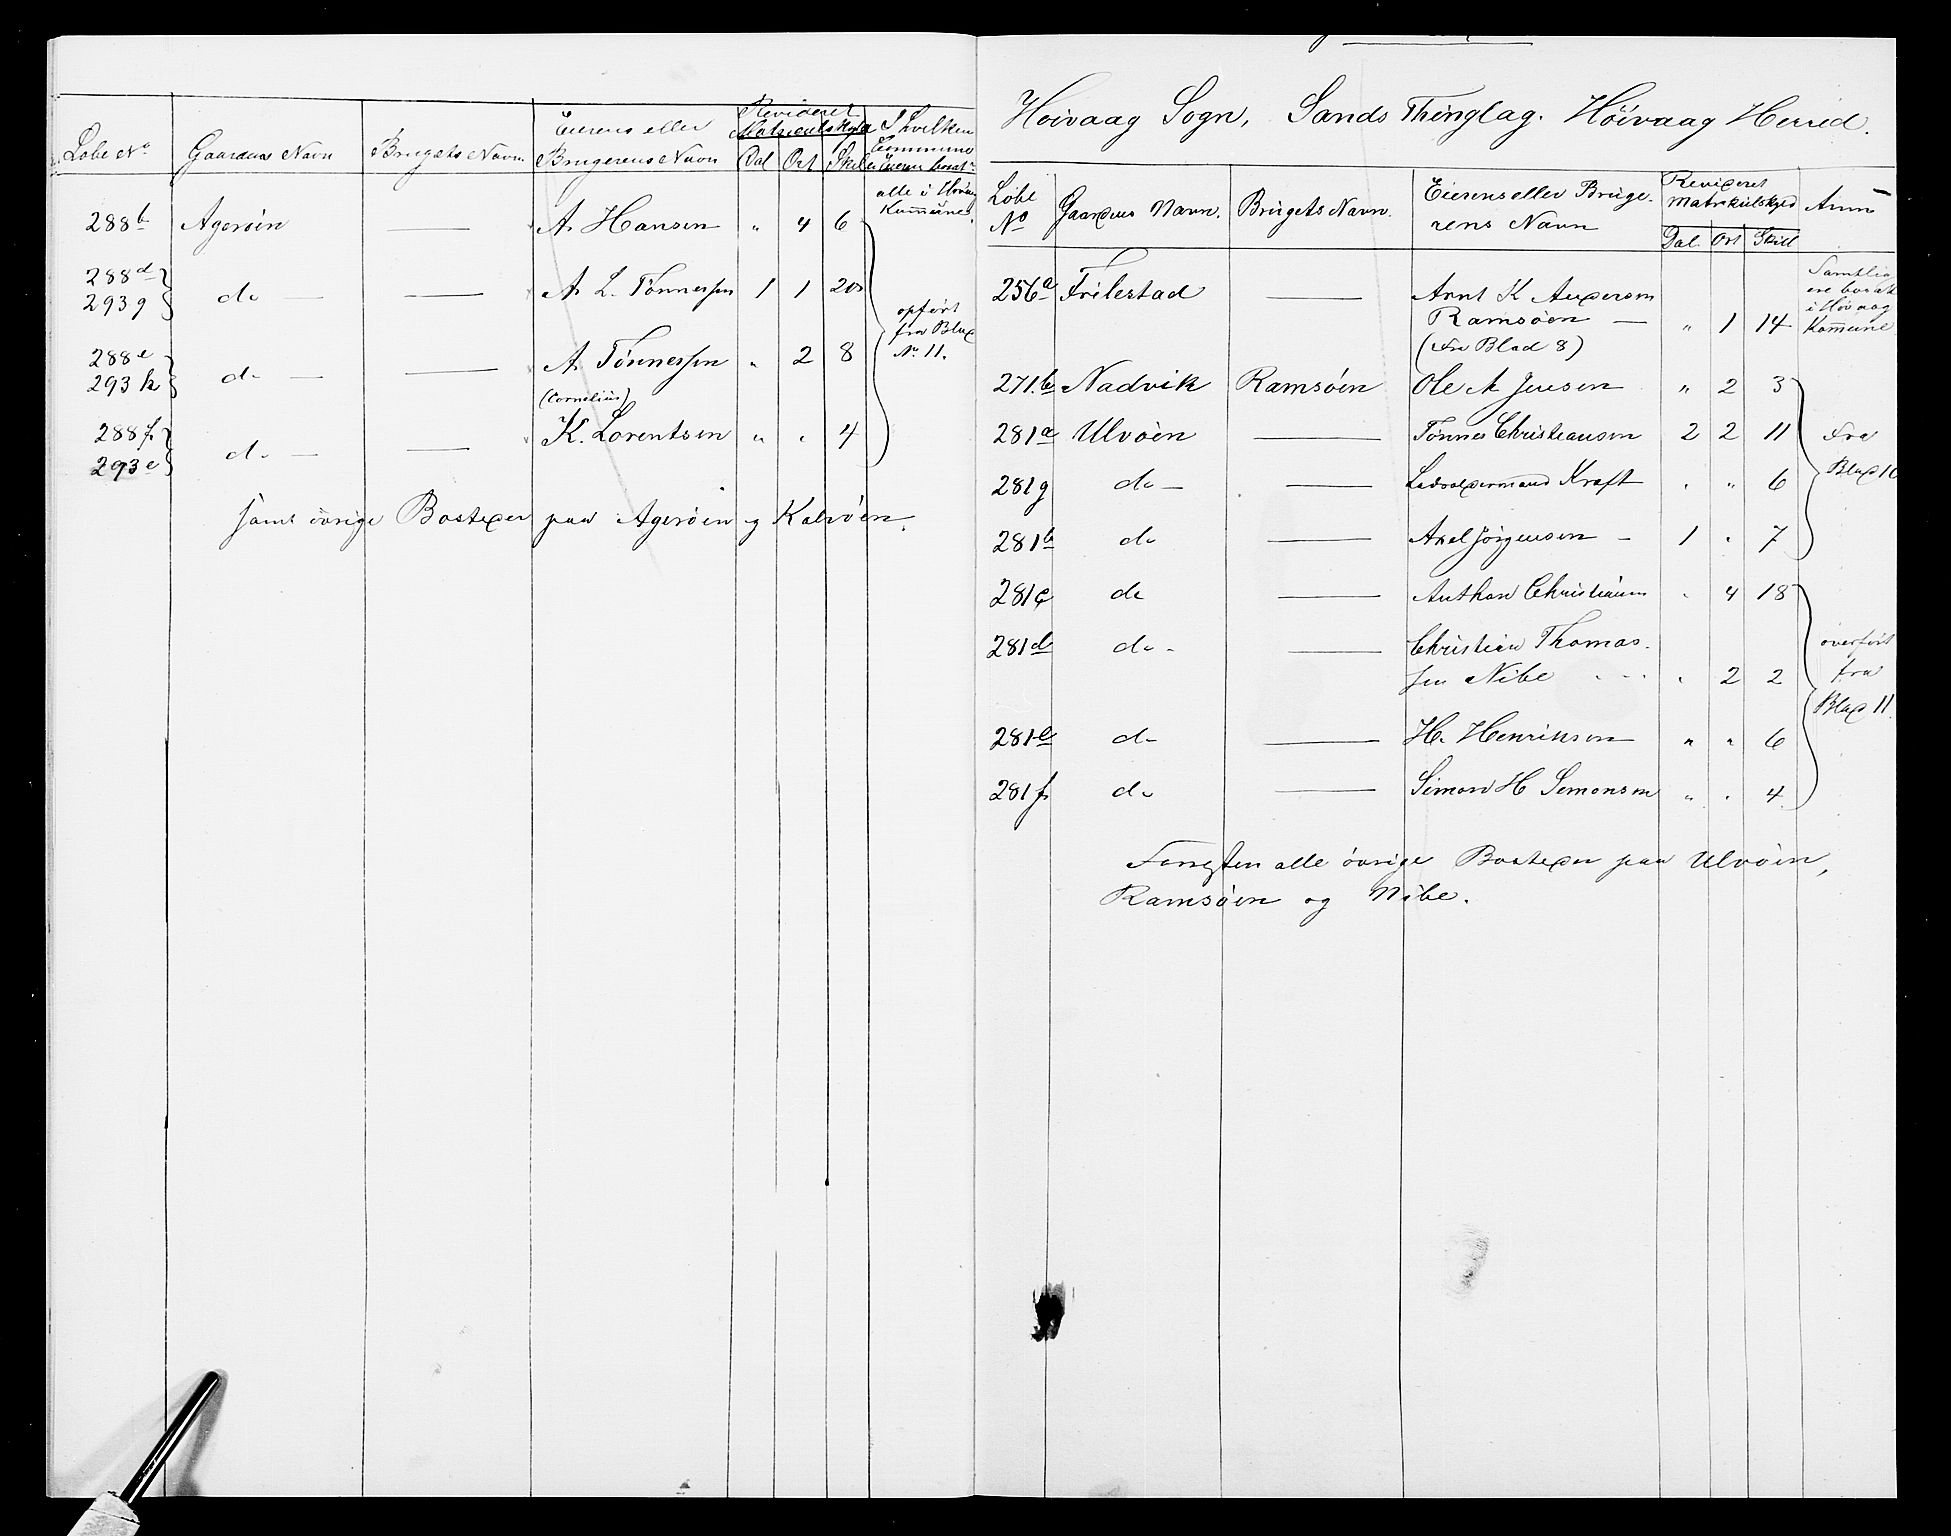 Löbe No Gaardens Navn Brugets Navn Eierens eller Brugerens Navn Revideret Matriculskyld Dal Ort Skil I hvilken Commune Eieren bosat
alle i Höivaag Kommune
288b Agerøen — A. Hansen " 4 6
288d
293g do — — A. L. Tönnessen 1 1 20
opført
fra Blad
No 11.
288e
293h do — — A. Tönnessen " 2 8
(Cornelius)
288f
293e do — — K. Lorentsen " " 4
samt övrige Bosteder paa Agerøen og Kalvøen.
Höivaag Sogn, Sands Thinglag. Höivaag Herred.
Löbe No Gaardens Navn. Brugets Navn. Eierens eller Brugerens Navn Revideret Matrikulskyld Dal. Ort Skill Anm
256a Frilestad — Arnt K Andersen
Ramsøen — " 1 14
(Fra Blad 8)
Samtlige
ere bosat
i Hövaag
Kommune
271.b Nadvik Ramsøen Ole A Jensen " 2 3
281a Ulvøen — Tönnes Christiansen 2 2 11
Fra
Blad 10
281g do — — Kraft " " 6
281b do — Axel Jörgensen — 1 " 7
281c do — Anthon Christiansen " 4 18
281d do — Christian Thomas-
sen Nibe " 2 2
overført
fra
Blad 11.
281e do — H. Henriksen " " 6
281f do — Simon H Simonsen " " 4
Forresten alle övrige Bosteder paa Ulvøen,
Ramsøen og Nibe.